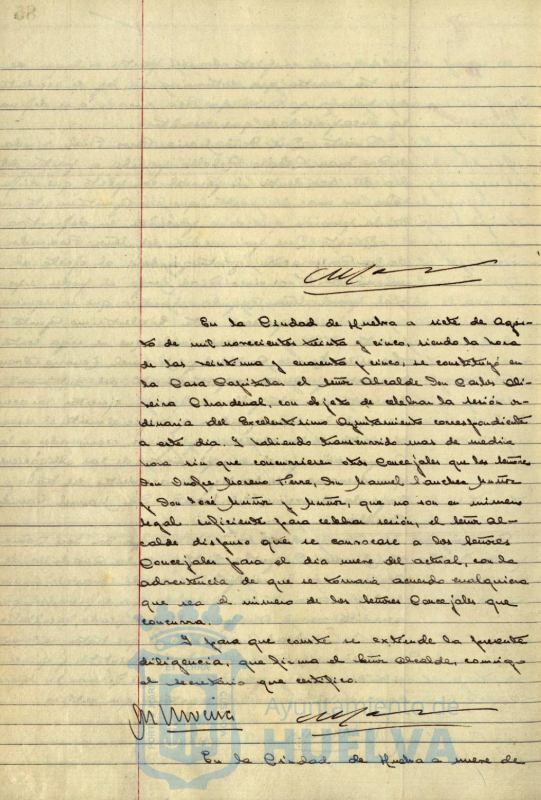 En la Ciudad de Huelva a siete de Agos-
to de mil novecientos treinta y cinco, siendo la hora
de las veintiuna y cuarenta y cinco, se constituyó en
la Casa Capitular el señor Alcalde Don Carlos Oli-
veira Chardenal, con objeto de celebrar la sesión or-
dinaria del Excelentísimo Ayuntamiento correspondiente
a este dia. Y habiendo transcurrido mas de media
hora sin que concurrieren otros Concejales que los señores
Don Onofre Moreno Ferre, Don Manuel Sanchez Muñoz
y Don José Muñoz y Muñoz, que no son en número
legal suficiente para celebrar sesión, el señor Al-
calde dispuso que se convocase a los Señores
Concejales para el dia nueve del actual, con la
advertencia de que se tomará acuerdo cualquiera
que sea el número de los Señores Concejales que
concurra.
Y para que conste se extiende la presente
diligencia, que firma el Señor Alcalde, conmigo
el secretario que certifico.
Ayuntamiento de
HUELVA
En la Ciudad de Huelva a nueve de